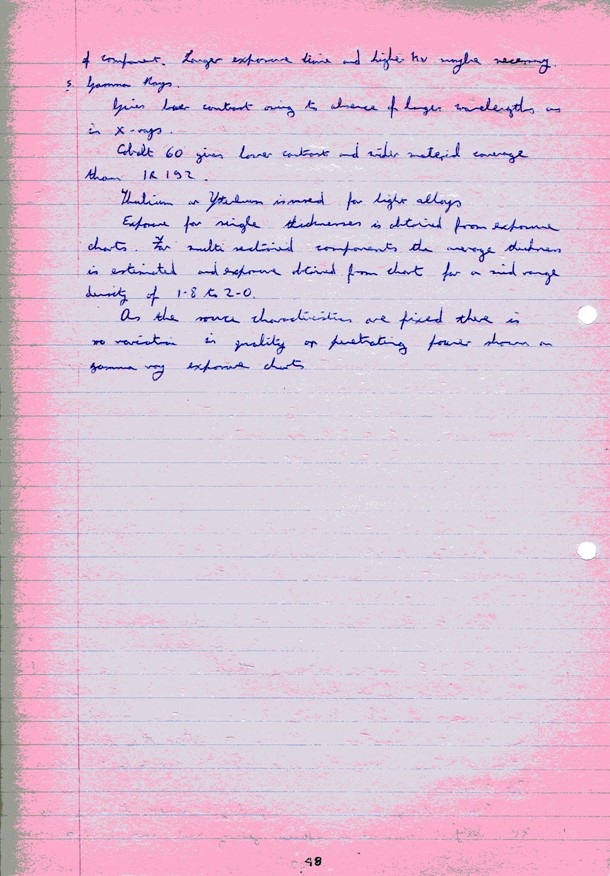 of component. Longer exposure time and higher kv maybe necessary.
5. Gamma Rays.
Gives lower contrast owing to absence of longer wavelengths as
in X-rays.
Cobalt 60 gives lower contrast and wider material coverage
than IR 192.
Thulium or Ytterbium is used for light alloys
Exposure for single thicknesses is obtained from exposure
charts. For multi sectioned components the average thickness
is estimated and exposure obtained from chart for a mid range
density of 1.8 to 2.0.
As the source characteristics are fixed there is
no variation in quality or penetrating power shown on
gamma ray exposure charts
48